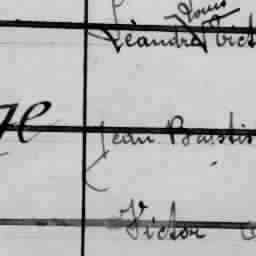 Louis
Léandre Vict
ge
Jean Baptis
Victor